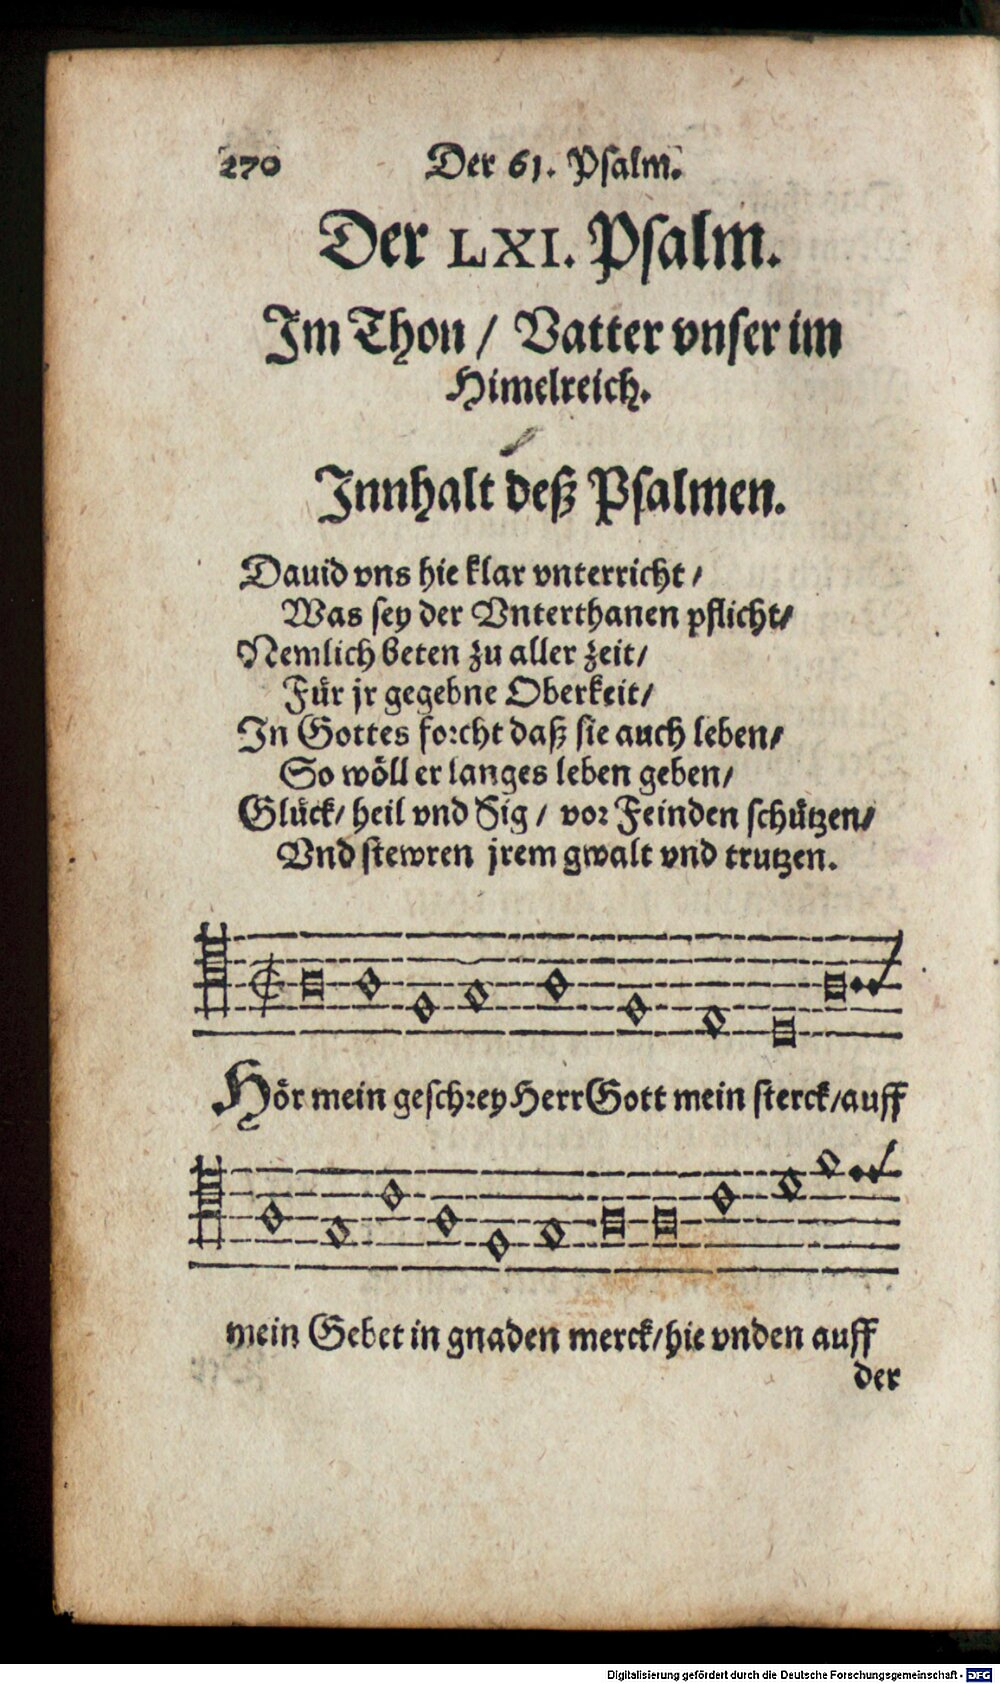 270 Der 61. Psalm.
Der LXI. Psalm.
Im Thon / Vatter vnser im
Himelreich.
Innhalt deß Psalmen.
Dauid vns hie klar vnterricht /
Was sey der Vnterthanen pflicht/
Nemlich beten zu aller zeit/
Für jr gegebne Oberkeit/
In Gottes forcht daß sie auch leben/
So wöll er langes leben geben/
Glück/ heil vnd Sig / vor Feinden schützen/
Vnd stewren jrem gwalt vnd trutzen.
Hör mein geschrey Herr Gott mein sterck/auff
mein Gebet in gnaden merck/hie vnden auff
der
Digitalisierung gefördert durch die Deutsche Forschungsgemeinschaft - DFG